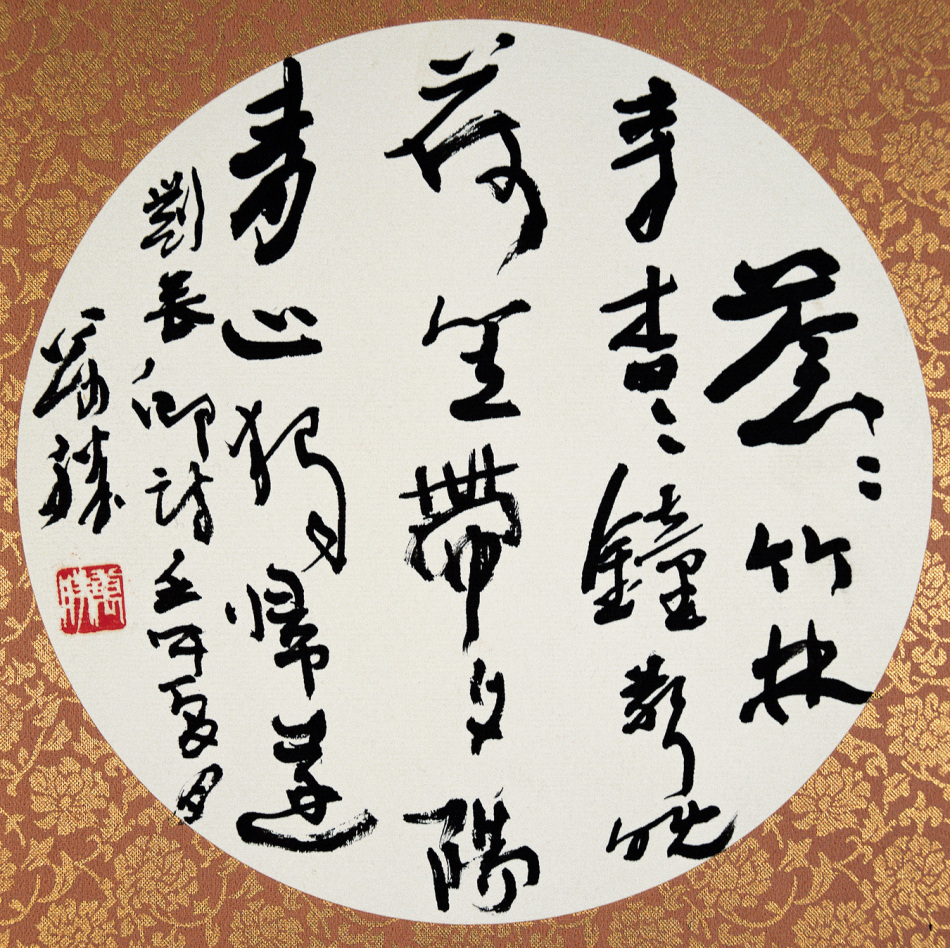 蒼〻竹林
寺杳〻鐘聲晚
荷笠帶夕陽
青山獨歸遠
劉長卿詩壬午夏月
勝